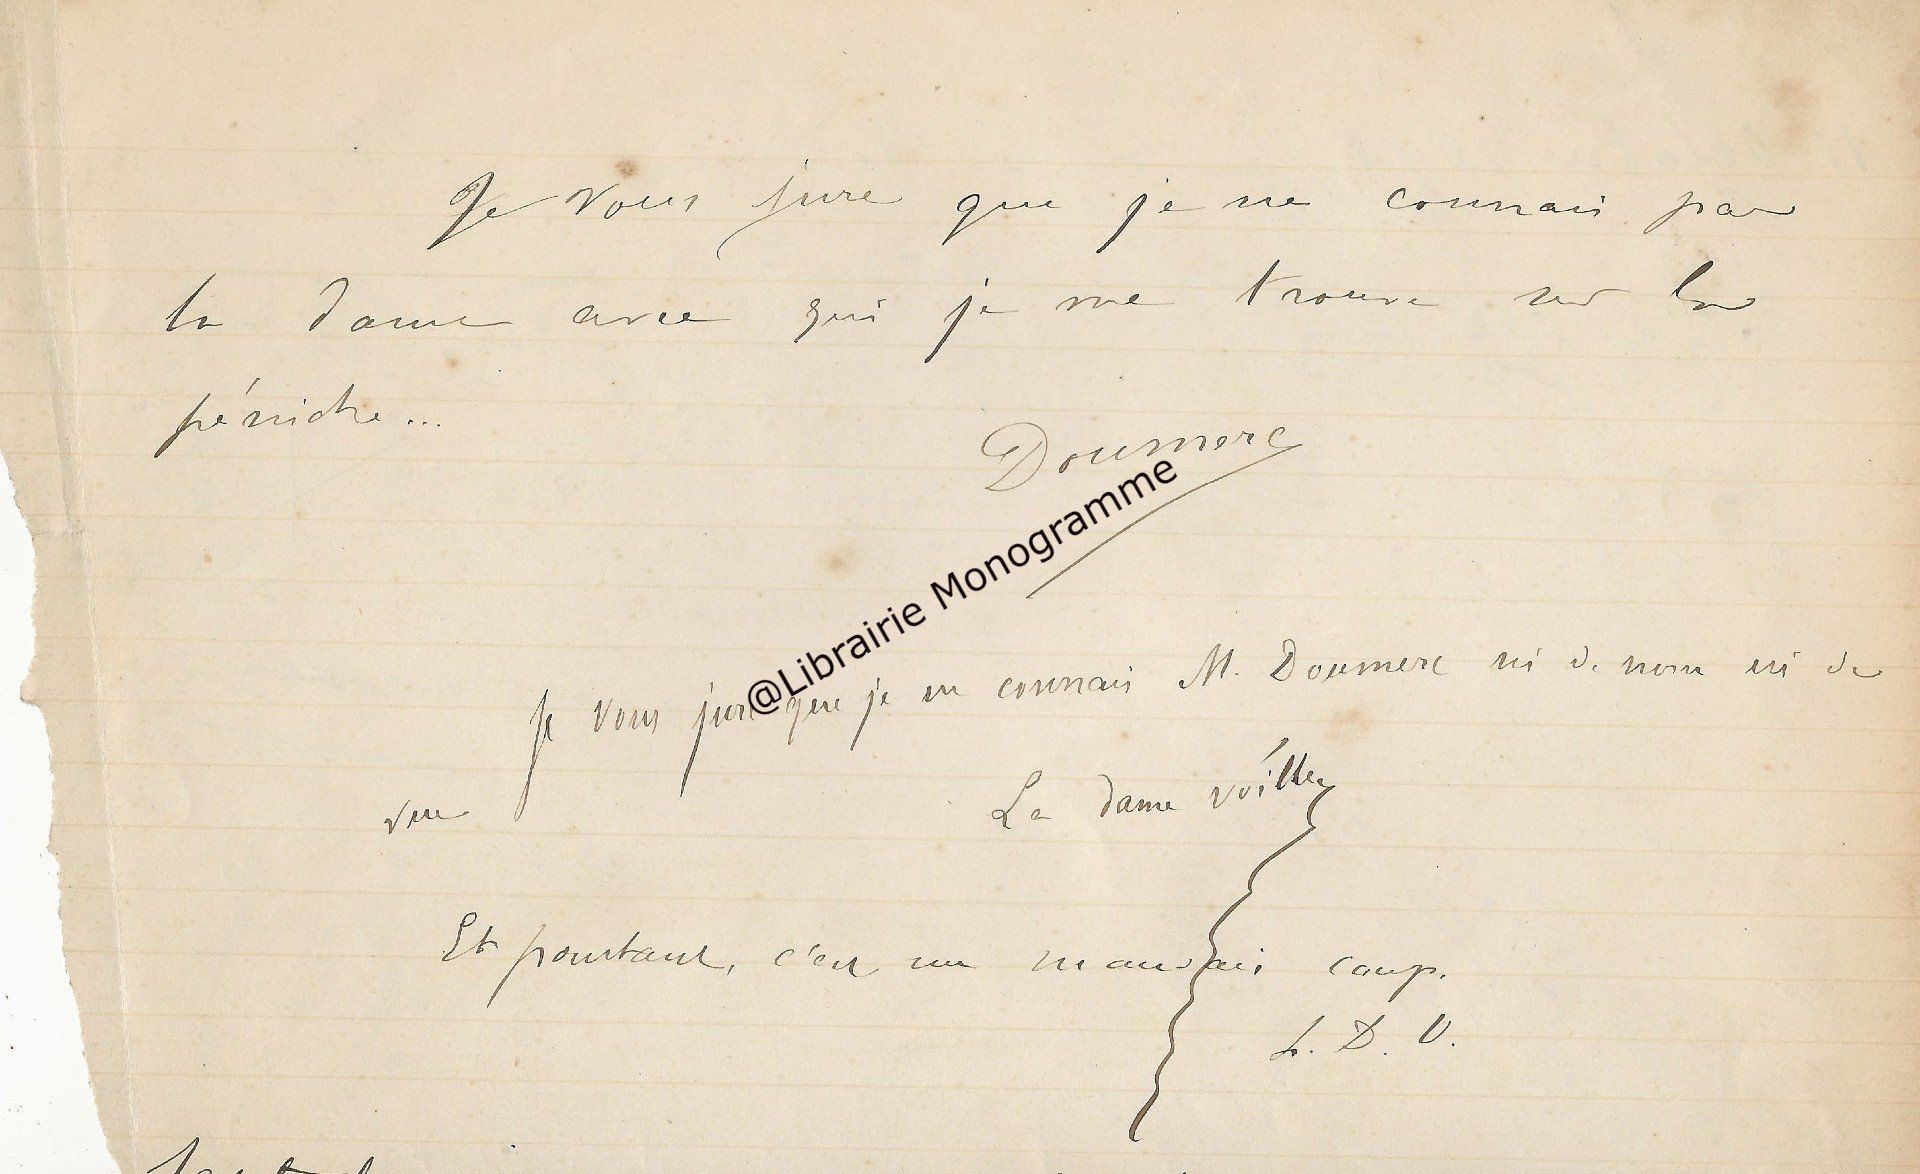 Je vous jure que je ne connais pas
la dame avec qui je me trouve sur la
péniche...
Doumerc
@Librairie Monogramme
Je vous jure que je ne connais M. Doumerc ni de nom ni de
vue
La dame voilée
Et pourtant, c'est un mauvais coup.
L. D. V.